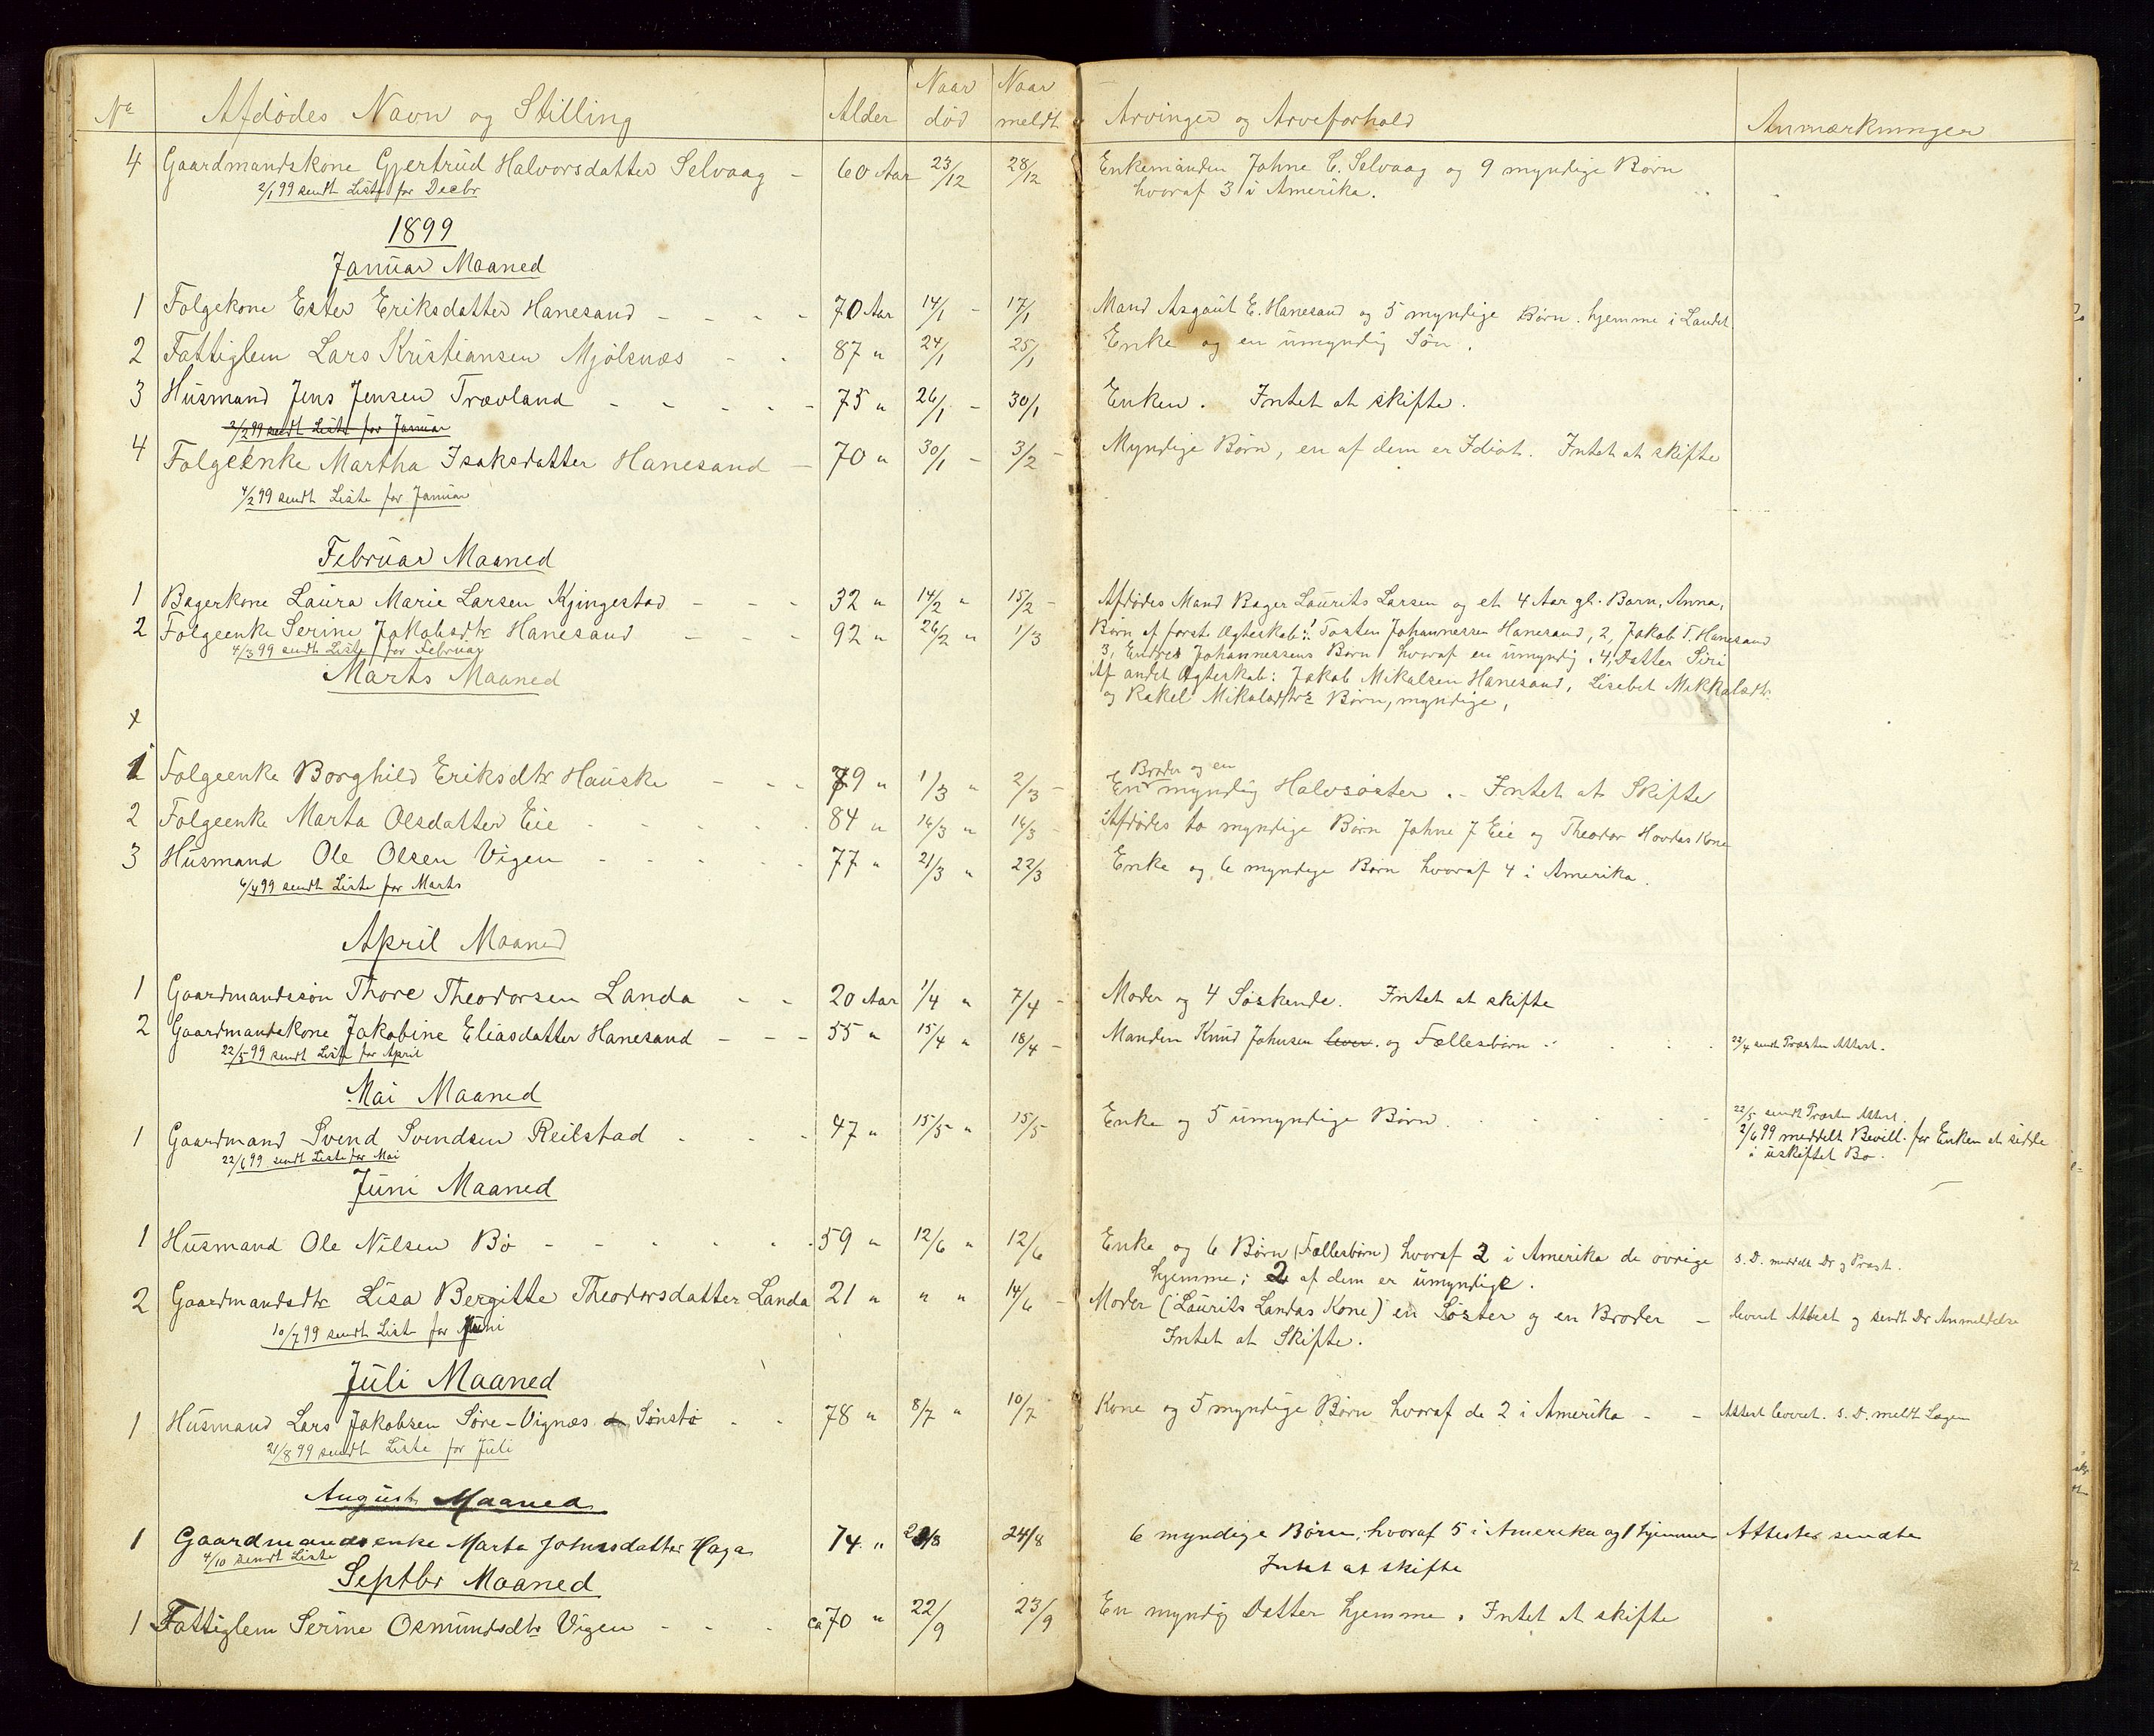 No Afdødes Navn og Stilling Alder Naar død Naar meldt Arvinger og Arveforhold Anmærkninger
4 Gaardmandskone Gjertrud Halvorsdatter Selvaag - 60 Aar 23/12 28/12 Enkemanden Johne C. Selvaag og 9 myndige Børn
2/1 99 sendt Liste for Decbr hvoraf 3 i Amerika.
1899
Januar Maaned
1 Folgekone Ester Eriksdatter Hanesand - - - - 70 Aar 14/1 - 17/1 Mand Asgaut E. Hanesand og 5 myndige Børn. hjemme i Landet
2 Fattiglem Lars Kristiansen Mjølsnæs - - 87 " 24/1 25/1 Enke og en umyndig Søn.
3 Husmand Jens Jensen Trævland - - - - - 75 " 26/1 - 30/1 Enken. Intet at skifte.
2/2 99 sendt Liste for Januar
4 Folgeenke Martha Isaksdatter Hanesand - 70 " 30/1 - 3/2 - Myndige Børn, en af dem er Idiot. Intet at skifte
4/2 99 sendt Liste for Januar
Februar Maaned
1 Bagerkone Laura Marie Larsen Kjingestad - - - 32 " 14/2 " 15/2 - Afdødes Mand Bager Laurits Larsen og et 4 Aar gl. Barn, Anna,
2 Folgeenke Serine Jakobsdtr Hanesand - - - 92 " 26/2 " 1/3 Børn af første Ægteskab: 1 Tosten Johannessen Hanesand, 2, Jakob T. Hanesand
4/3 99 sendt Liste for Februar 3, Endres Johannessens Børn hvoraf en umyndig. 4, Datter Siri
Marts Maaned Af andet Ægteskab: Jakob Mikalsen Hanesand, Lisebet Mikkalsdtr.
og Rakel Mikalsdtrs Børn, myndige,
x
1 Folgeenke Borghild Eriksdtr Hauske - - - 79 " 1/3 " 2/3 - En Broder og en myndig Halvsøster. - Intet at Skifte
2 Folgeenke Marta Olsdatter Eie - - - - - 84 " 16/3 " 16/3 - Afdødes to myndige Børn Johne J Eie og Theodor Hovdas Kone
3 Husmand Ole Olsen Vigen - - - - 77 " 21/3 " 22/3 Enke og 6 myndige Børn hvoraf 4 i Amerika.
6/4 99 sendt Liste for Marts
April Maaned
1 Gaardmandssøn Thore Theodorsen Landa - - 20 Aar 1/4 " 7/4 - Moder og 4 Søskende. Intet at skifte
2 Gaardmandskone Jakobine Eliasdatter Hanesand - - - 55 " 15/4 " 18/4 - Manden Knud Johnsen lever. og Fællesbørn - - - 22/4 sendt Præsten Attest.
22/5 99 sendt Liste for April
Mai Maaned
1 Gaardmand Svend Svendsen Reilstad - - - 47 " 15/5 " 15/5 Enke og 5 umyndige Børn. - - - 22/5 sendt Præsten Attest.
22/6 99 sendt Liste for Mai 2/6 99 meddelt Bevill. for Enken at sidde
i uskiftet Bo.
Juni Maaned
1 Husmand Ole Nilsen Bø - - - - - - 59 " 12/6 " 12/6 Enke og 6 Børn (Fællesbørn) hvoraf 2 i Amerika de øvrige s. D. meddelt Dr og Præst.
hjemme; 2 af dem er umyndige.
2 Gaardmandsdtr Lisa Bergitte Theodorsdatter Landa 21 " " " 14/6 - Moder (Laurits Landas Kone) en Søster og en Broder - leveret Attest og sendt Dr Anmeldelse
10/7 99 sendt Liste for Juni Intet at Skifte.
Juli Maaned
1 Husmand Lars Jakobsen Søre-Vignæs Sønstø - - 78 " 8/7 " 10/7 Kone og 5 myndige Børn hvoraf de 2 i Amerika - - Attest leveret. s. D. meldt Lægen
21/8 99 sendt Liste for Juli
August Maaned
1 Gaardmandsenke Marta Johnsdatter Haga 74 " 24/8 6 myndige Børn, hvoraf 5 i Amerika og 1 hjemme Attester sendte
4/10 sendt Liste Intet at skifte
Septbr Maaned
1 Fattiglem Serine Osmundsdtr Vigen - - - ca 70 " 22/9 23/9 En myndig Datter hjemme. Intet at skifte